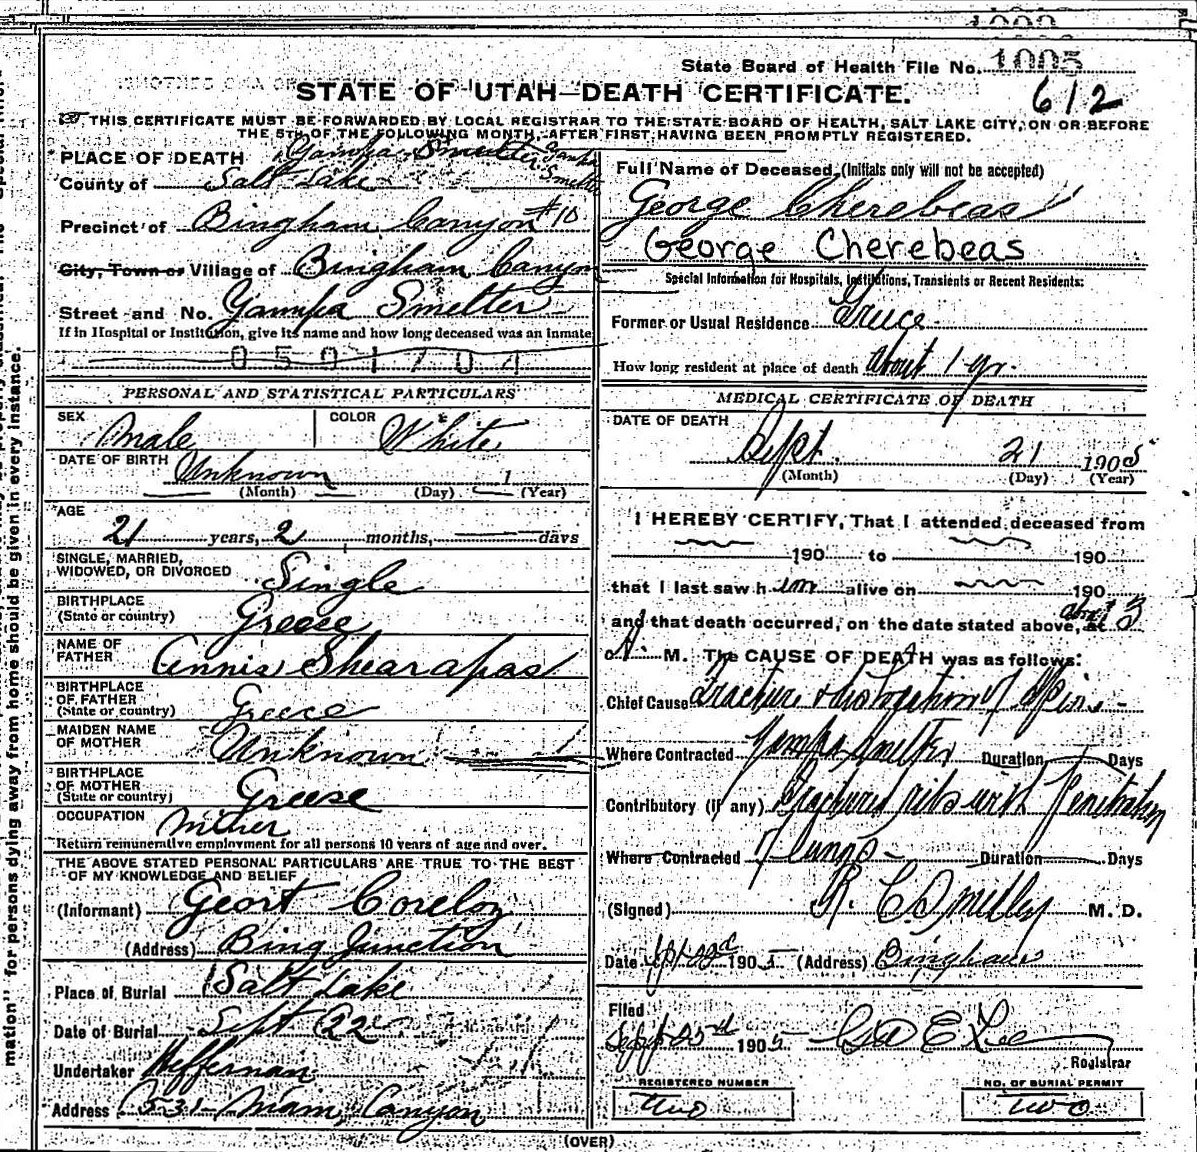 State Board of Health File No. 1005
612
STATE OF UTAH—DEATH CERTIFICATE.
THIS CERTIFICATE MUST BE FORWARDED BY LOCAL REGISTRAR TO THE STATE BOARD OF HEALTH, SALT LAKE CITY, ON OR BEFORE
THE 5TH OF THE FOLLOWING MONTH, AFTER FIRST HAVING BEEN PROMPTLY REGISTERED.
PLACE OF DEATH Yampa Smelter
County of Salt Lake
Precinct of Bingham Canyon #10
City, Town or Village of Bingham Canyon
Street and No. Yampa Smelter
If in Hospital or Institution, give its name and how long deceased was an inmate
0501704
PERSONAL AND STATISTICAL PARTICULARS
SEX Male COLOR White
DATE OF BIRTH Unknown 1
(Month) (Day) (Year)
AGE
21 years, 2 months, days
SINGLE, MARRIED,
WIDOWED, OR DIVORCED Single
BIRTHPLACE
(State or country) Greece
NAME OF
FATHER Annis Shearapas
BIRTHPLACE
OF FATHER
(State or country) Greece
MAIDEN NAME
OF MOTHER Unknown
BIRTHPLACE
OF MOTHER
(State or country) Greese
OCCUPATION
Return remunerative employment for all persons 10 years of age and over.
THE ABOVE STATED PERSONAL PARTICULARS ARE TRUE TO THE BEST
OF MY KNOWLEDGE AND BELIEF
(Informant)
(Address) Bing Junction
Place of Burial Salt Lake
Date of Burial Sept 22
Undertaker Heffernan
Address 531 Main, Canyon
Full Name of Deceased, (Initials only will not be accepted)
George Cherebeas
George Cherebeas
Special Information for Hospitals, Institutions, Transients or Recent Residents:
Former or Usual Residence
How long resident at place of death about 1 yr.
MEDICAL CERTIFICATE OF DEATH
DATE OF DEATH
Sept. 21 1905
(Month) (Day) (Year)
I HEREBY CERTIFY, That I attended deceased from
190 to 190
that I last saw him alive on 190
and that death occurred, on the date stated above, at about 3
A. M. The CAUSE OF DEATH was as follows:
Chief Cause Fracture & dislocation of Spine
Where Contracted Yampa Smelter Duration Days
Contributory (if any) Fractured ribs with Penetration
Where Contracted of lungs Duration Days
(Signed) M. D.
Date 1905 (Address) Bingham
Filed
1905
Registrar
REGISTERED NUMBER NO. OF BURIAL PERMIT
two two
(OVER)
mation" for persons dying away from home should be given in every instance.